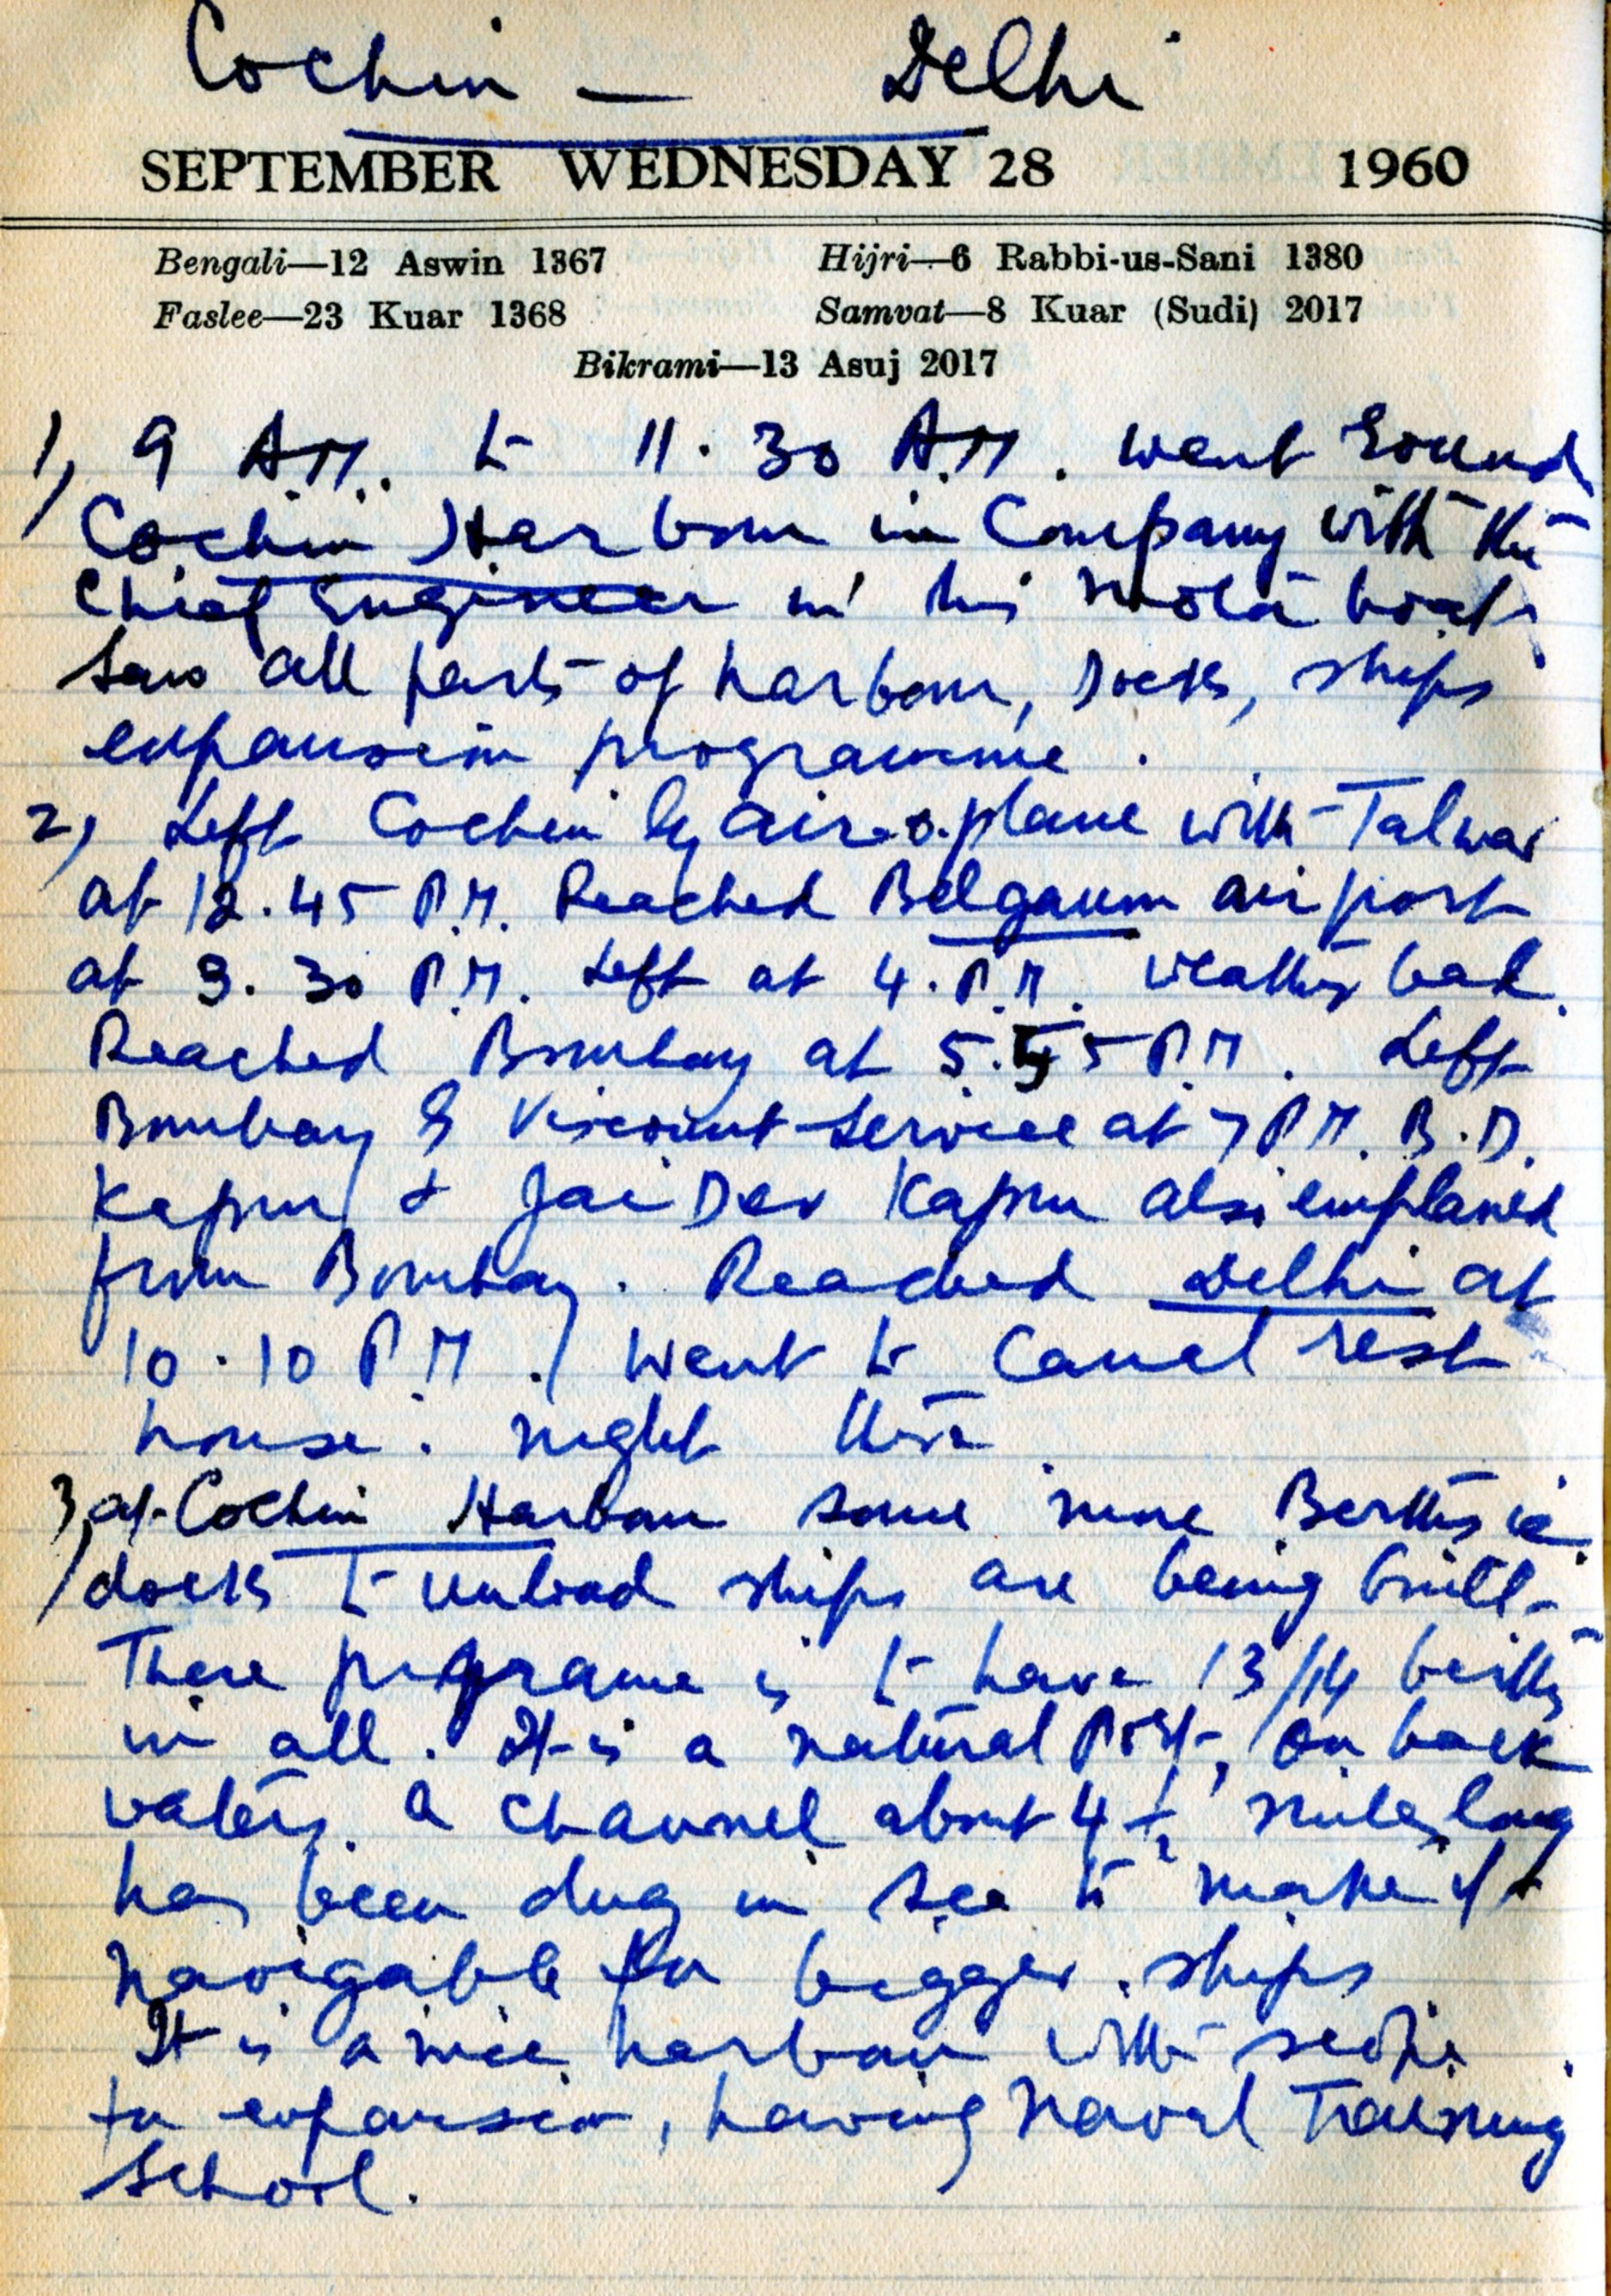 Cochin — Delhi
SEPTEMBER WEDNESDAY 28 1960
Bengali—12 Aswin 1367 Hijri—6 Rabbi-us-Sani 1380
Faslee—23 Kuar 1368 Samvat—8 Kuar (Sudi) 2017
Bikrami—13 Asuj 2017
1, 9 A.M. to 11.30 A.M. went round
Cochin Harbour in Company with the
Chief Engineer in his motor boat
Saw all parts of harbour, Docks, ships
expansion programme.
2, Left Cochin by airoplane with Talwar
at 12.45 P.M. Reached Belgaum airport
at 3.30 P.M. Left at 4. P.M. weather bad.
Reached Bombay at 5.55 P.M. Left
Bombay by Viscount Service at 7 P.M. B.D.
Kapur & Jai Dev Kapur also emplaned
from Bombay. Reached Delhi at
10.10 P.M. Went to Canal rest
house. night there
3, at Cochin Harbour some nine Berths ie
docks to unload ships are being built.
There programe is to have 13/14 berths
in all. It is a natural Port, on back
waters. a channel about 4½ miles long
has been dug in sea to make it
navigable for bigger ships
It is a nice harbour with
for expansion, having Naval Training
School.